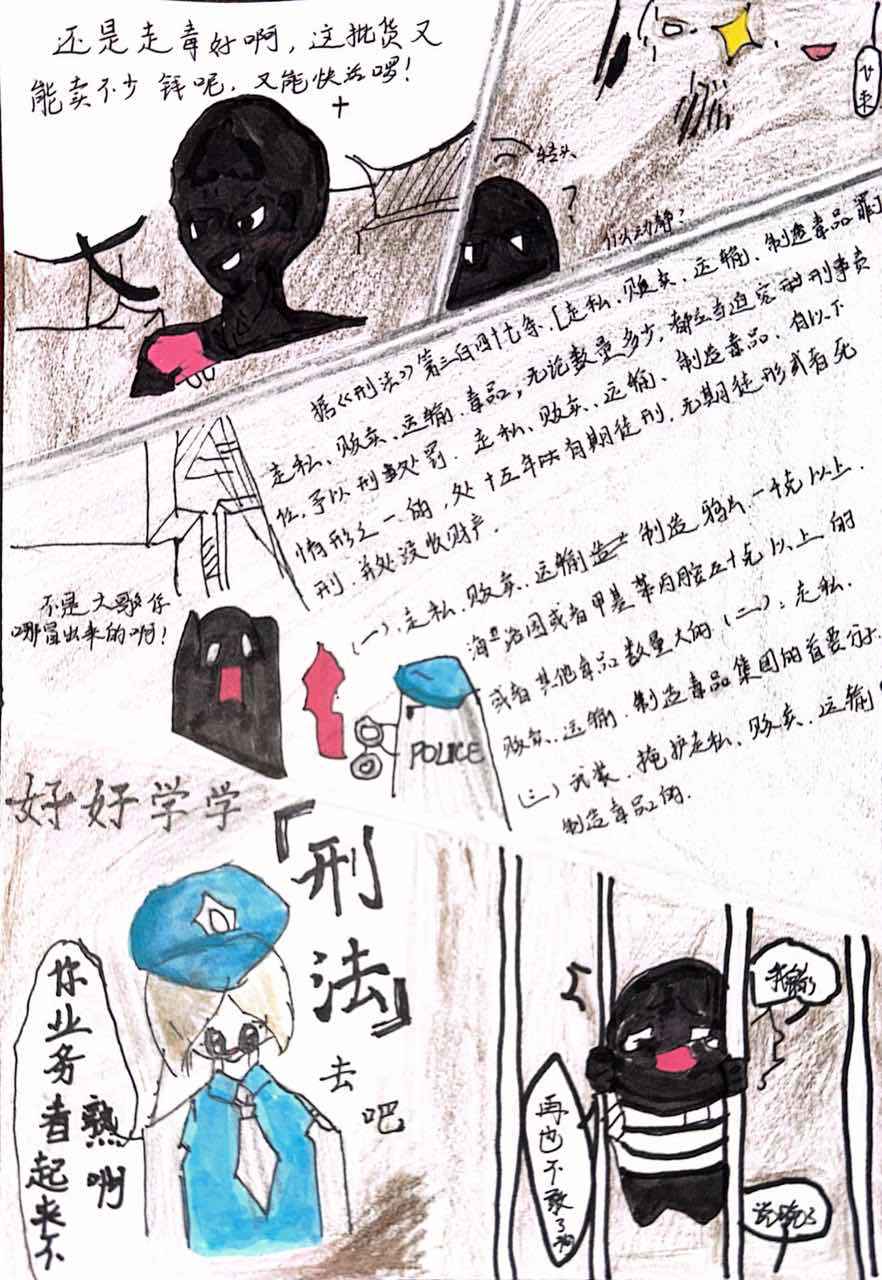 还是走毒好啊,这批货又
能卖不少钱呢,又能快活啰!
转头
?
什么动静?
出来
据《刑法》第三百四十七条.[走私、贩卖、运输、制造毒品罪]
走私、贩卖、运输、毒品,无论数量多少,都应当追究刑事责
任,予以刑事处罚.走私、贩卖、运输、制造毒品.有以下
情形之一的,处十五年有期徒刑.无期徒刑或者死
刑.并处没收财产.
(一).走私、贩卖、运输 制造鸦片一千克以上.
海洛因或者甲基苯丙胺五十克以上的
或者其他毒品数量大的.(二).走私.
贩卖、运输.制造毒品集团的首要分子.
(三)武装.掩护走私、贩卖、运输
制造毒品的.
不是大哥你
哪冒出来的啊!
POLICE
好好学学
『刑法』
去吧
你业务看起来不
熟啊
我
再也不敢了